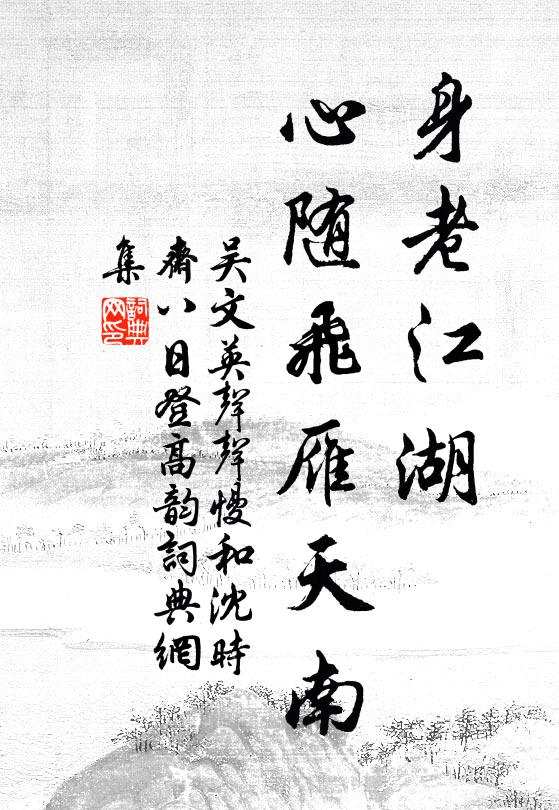 身老江湖
心随飛雁天南
吴文英聲聲慢和沈時
齋八日登高韵詞典網
集
詞典
网印